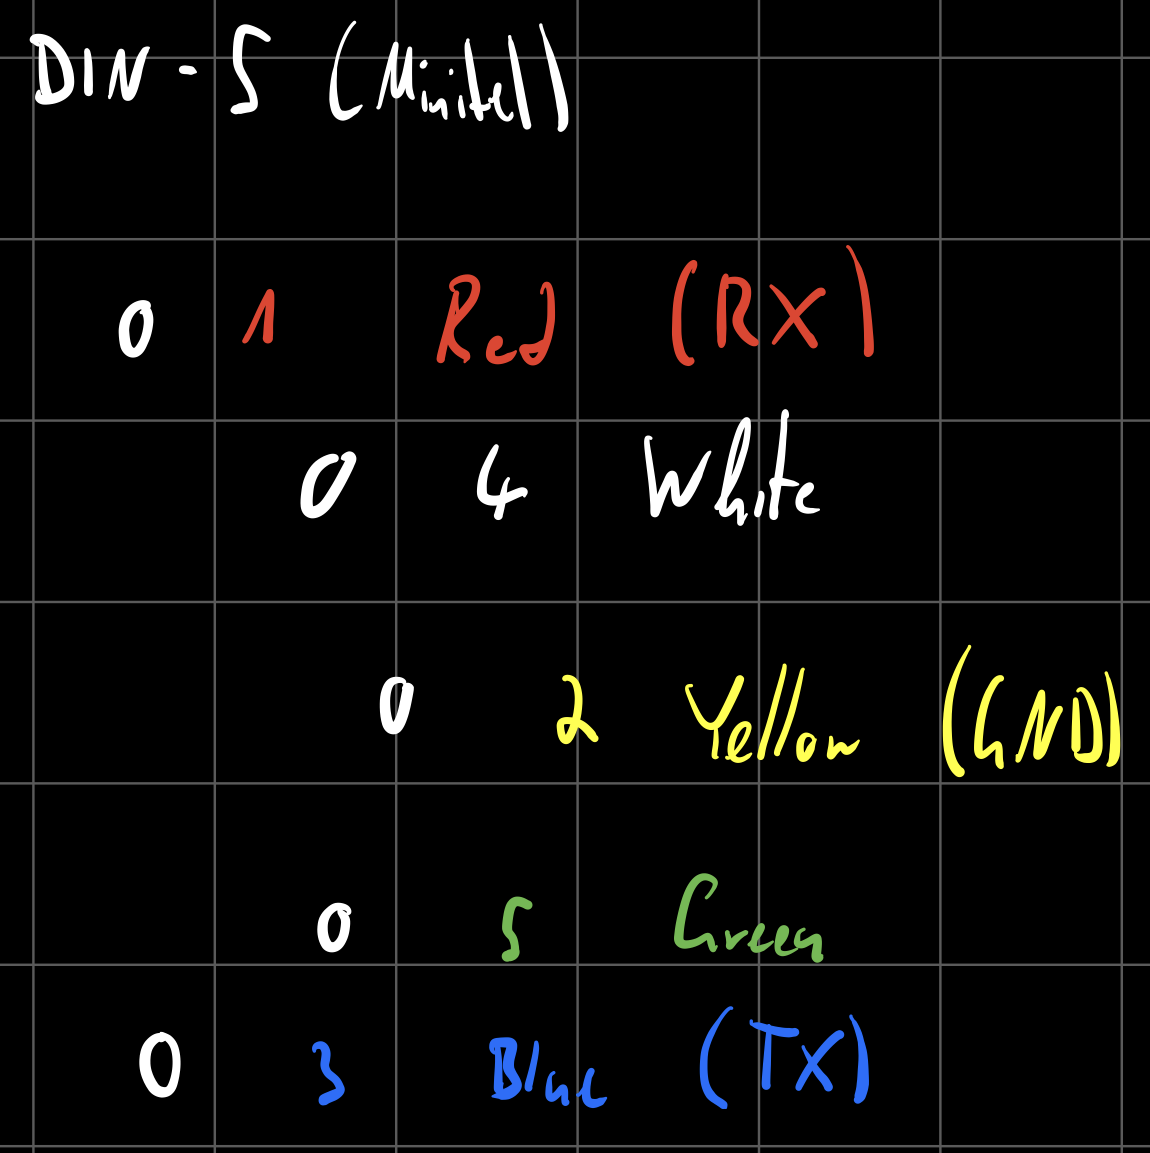 DIN-5 (Minitel)
0 1 Red (RX)
0 4 White
0 2 Yellow (GND)
0 5 Green
0 3 Blue (TX)